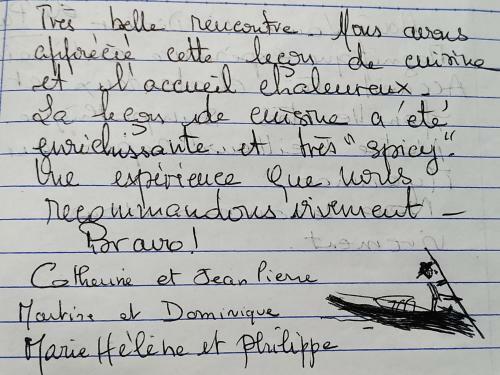 Très belle rencontre. Nous avons
apprécié cette leçon de cuisine
et l'accueil chaleureux.
La leçon de cuisine a été
enrichissante et très "spicy".
Une expérience que nous
recommandons vivement -
Bravo!
Catherine et Jean Pierre
Martine et Dominique
Marie Hélène et Philippe